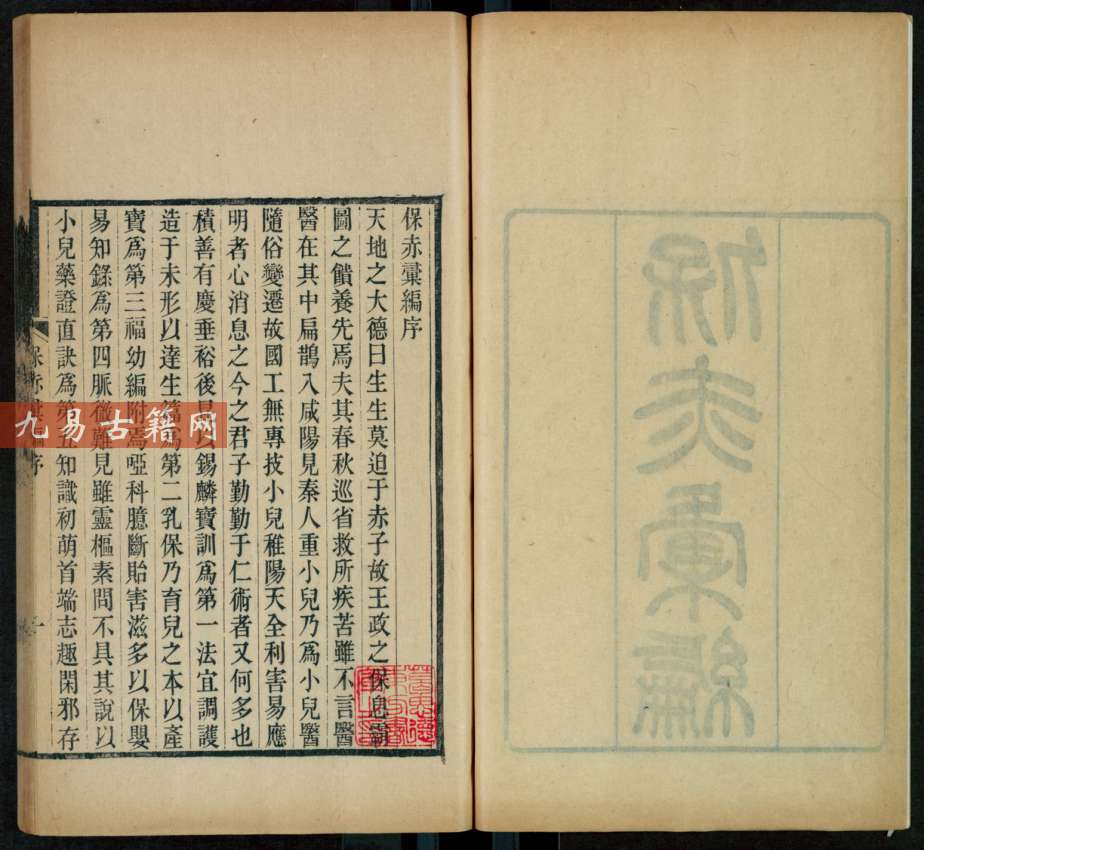 保赤彙編
保赤彙編序
天地之大德曰生生莫迫于赤子故王政之保息
圖之饋養先焉夫其春秋巡省救所疾苦雖不言醫
醫在其中扁鵲入咸陽見秦人重小兒乃爲小兒醫
隨俗變遷故國工無專技小兒稚陽天全利害易應
明者心消息之今之君子勤勤于仁術者又何多也
積善有慶垂裕後昆以錫麟寶訓爲第一法宜調護
造于未形以達生篇爲第二乳保乃育兒之本以產
寶爲第三福幼編附焉啞科臆斷貽害滋多以保嬰
易知錄爲第四脈微難見雖靈樞素問不具其說以
小兒藥證直訣爲第五知識初萌首端志趣閑邪存
保赤彙編序 一
九易古籍网